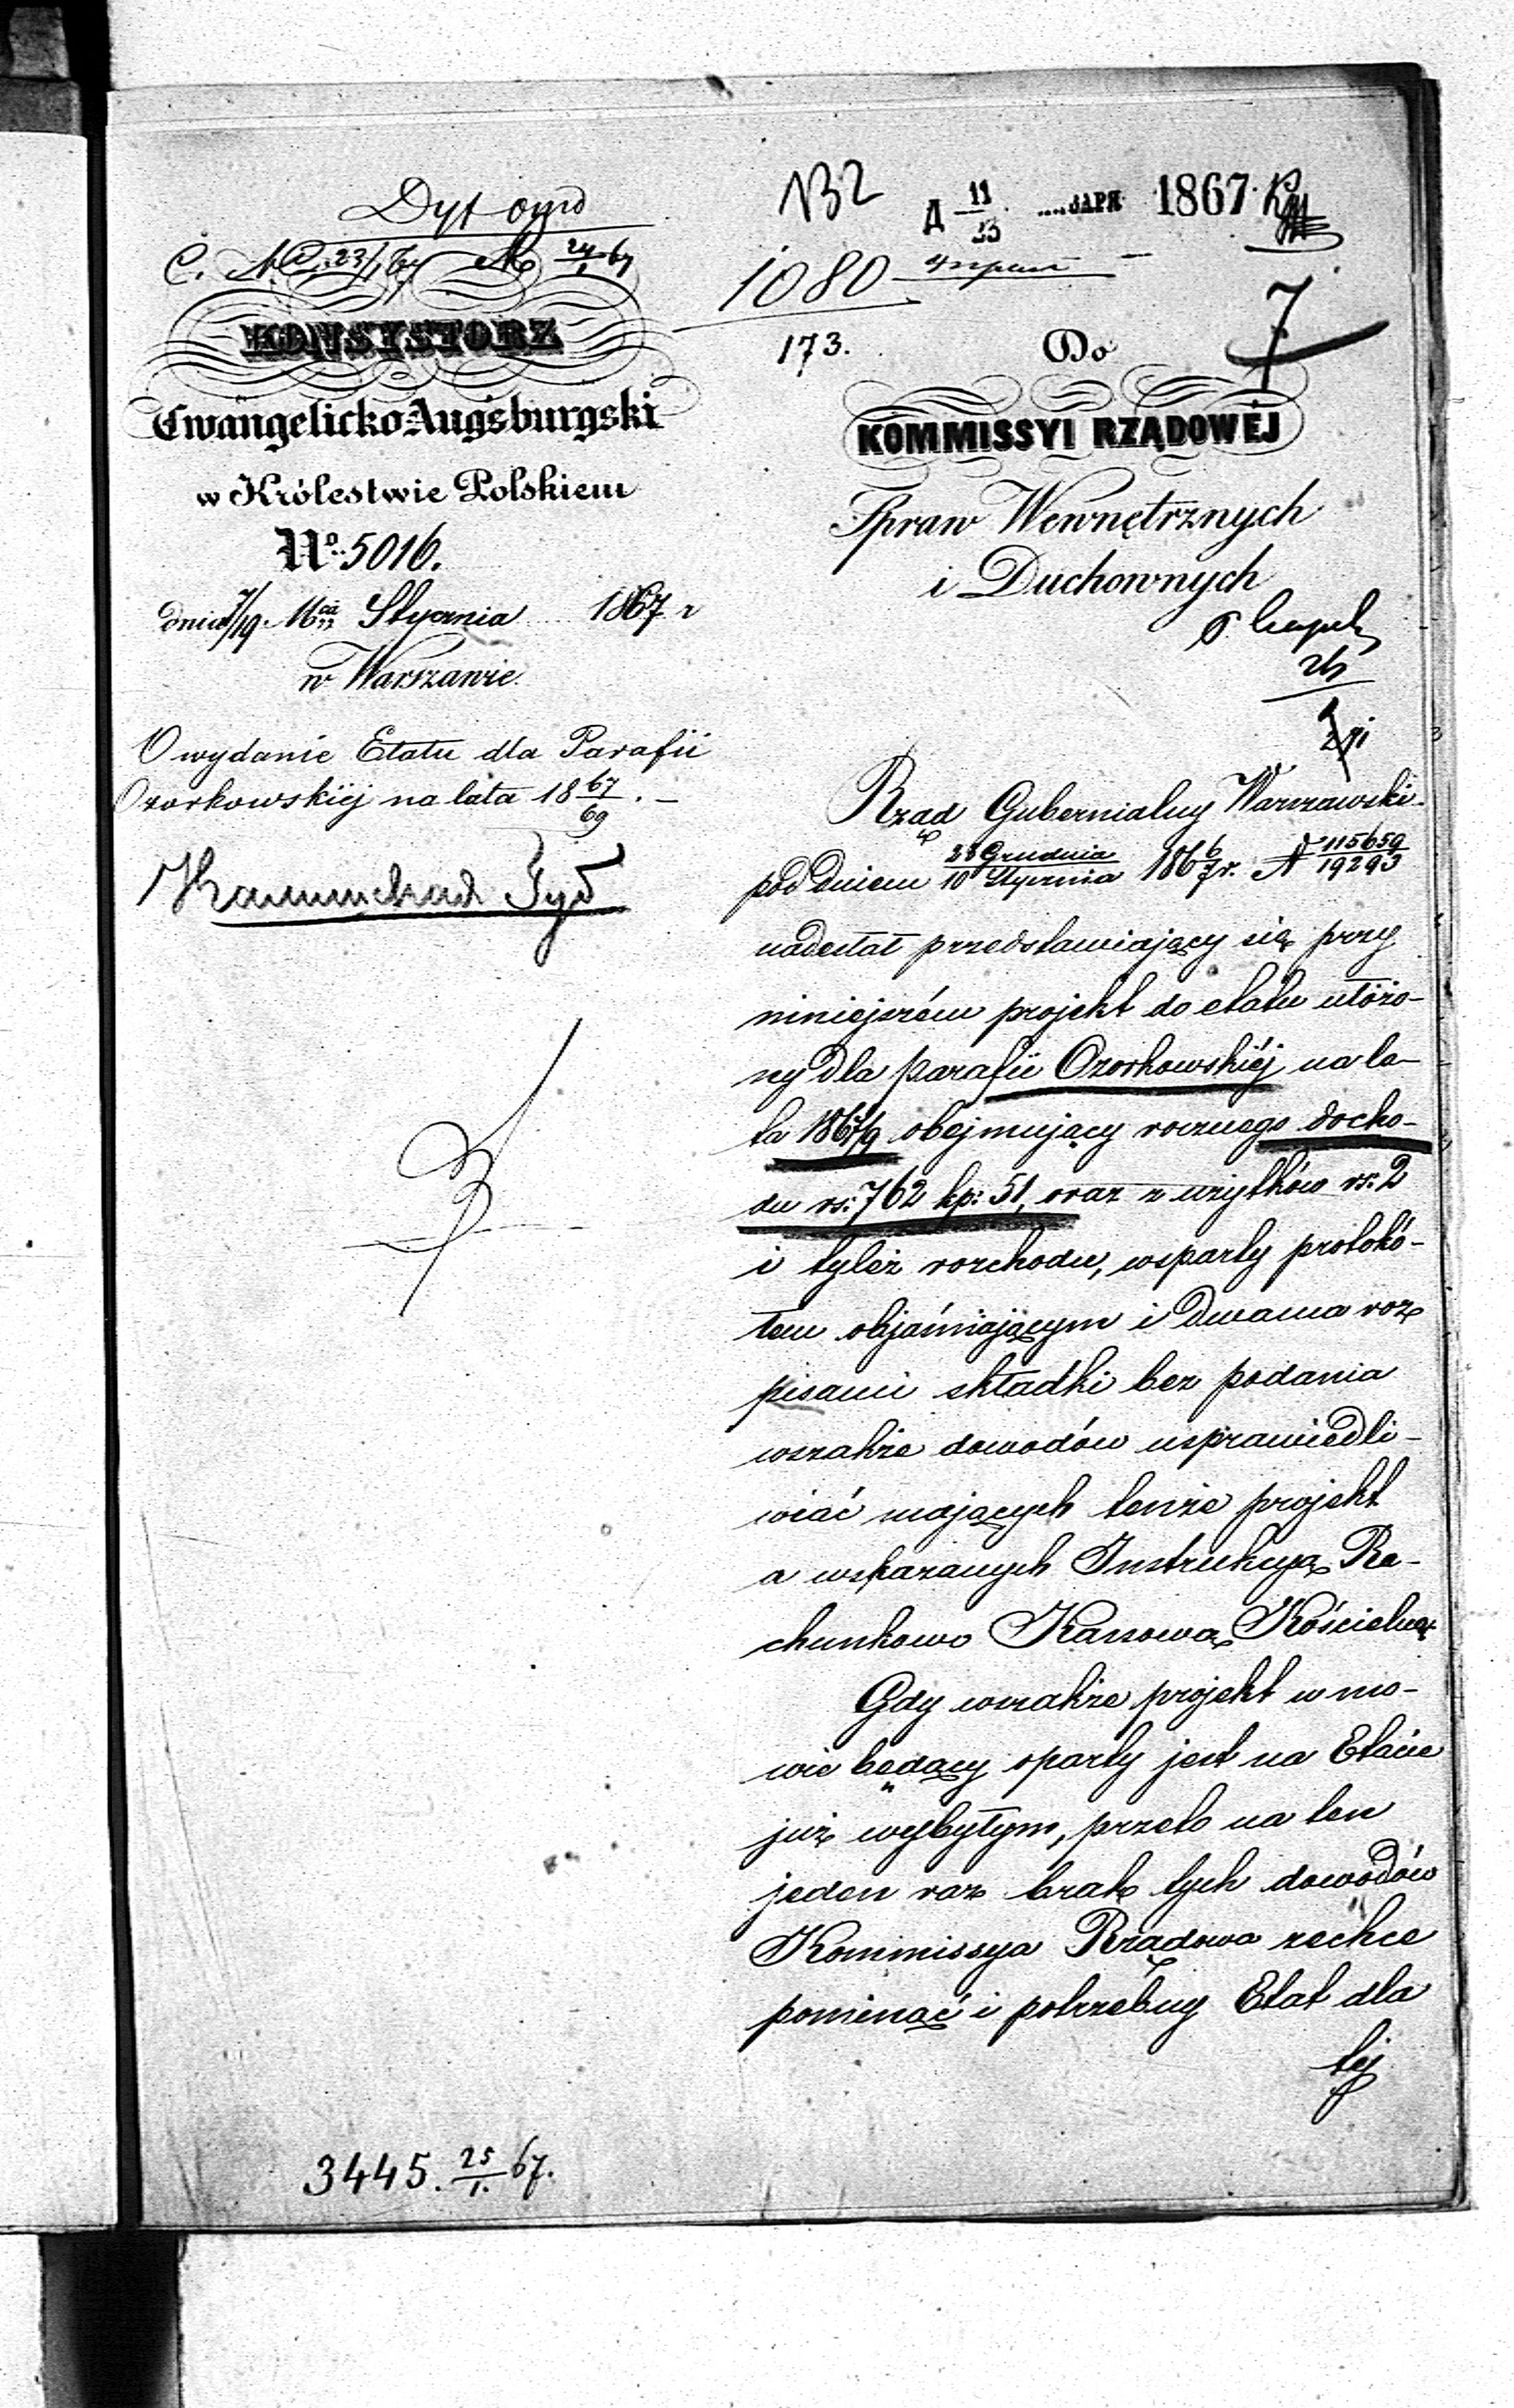 132
Д 11/23 ЯНВАРЯ 1867
1080
173.
7
KONSYSTORZ
Ewangelicko-Augsburgski
w Królestwie Polskiem
No. 5016.
dnia 7/19. Stycznia 1867 r
w Warszawie.
O wydanie Etatu dla Parafii
Ozorkowskiéj na lata 18 67/69. –
3445. 25/1. 67.
Do
KOMMISSYI RZĄDOWÉJ
Spraw Wewnętrznych
i Duchownych
Rząd Gubernialny Warszawski
pod dniem 28 Grudnia/10 Stycznia 186 6/7 r. N 115659/19293
nadesłał przedstawiający się przy
niniejszém projekt do etatu ułożo-
ny dla parafii Ozorkowskiéj na la-
ta 1867/9 obejmujący rocznego docho-
du rs: 762 kp: 51, oraz z użytków rs: 2
i tyleż rozchodu, wsparty protokó-
łem objaśniającym i dwama roz
pisami składki bez podania
wszakże dowodów usprawiedli-
wiać mających tenże projekt
a wskazanych Instrukcyą Ra-
chunkowo Kassową Kościelną
Gdy wszakże projekt w mo-
wie będący oparty jest na Etacie
już wybyłym, przeto na ten
jeden raz brak tych dowodów
Kommissya Rządowa zechce
pominąć i potrzebny Etat dla
téj